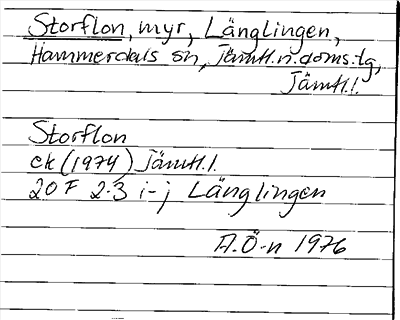 Storflon, myr, Länglingen,
Hammerdals sn, Jämtl.n.doms.lg,
Jämtl.l.
Storflon
ek (1974) Jämtl.l.
20 F 2-3 i-j Länglingen
A.Ö-n 1976